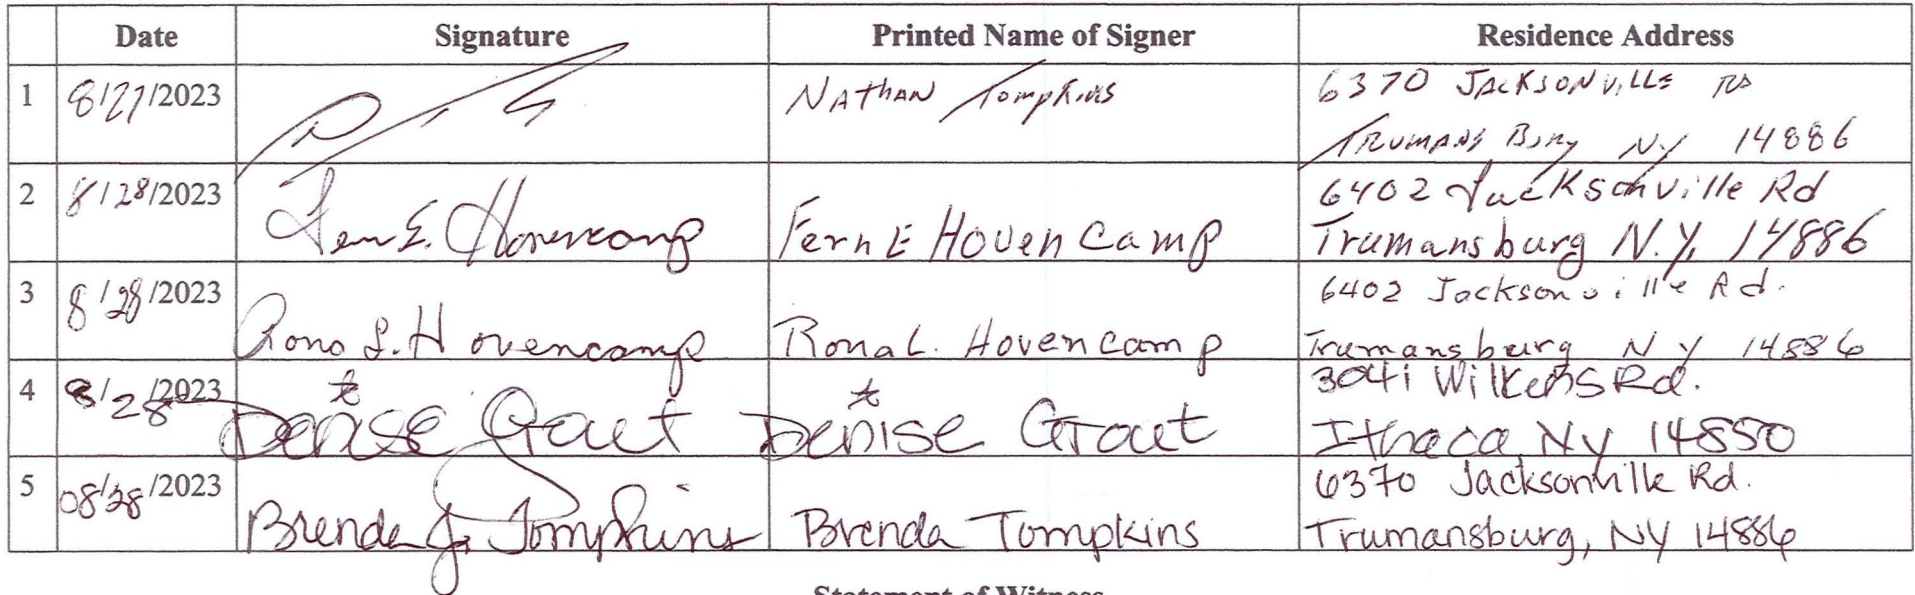 Date Signature Printed Name of Signer Residence Address
1 8/27/2023 Nathan Tompkins 6370 Jacksonville Rd
Trumansburg NY 14886
2 8/28/2023 Fern E. Hovencamp Fern E Hovencamp 6402 Jacksonville Rd
Trumansburg N.Y. 14886
3 8/28/2023 Rona L. Hovencamp Rona L. Hovencamp 6402 Jacksonville Rd.
Trumansburg NY 14886
4 8/28/2023 Denise Grout Denise Grout 3041 Wilkens Rd.
Ithaca, NY 14850
5 08/28/2023 Brenda J. Tompkins Brenda Tompkins 6370 Jacksonville Rd.
Trumansburg, NY 14886
Statement of Witness